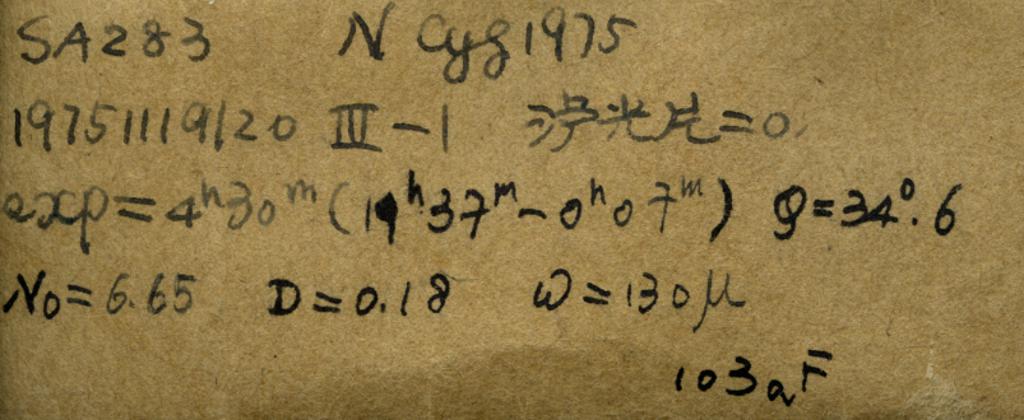 SA283 N Cyg 1975
19751119/20 III-1 滤光片=0.
exp=4ʰ30ᵐ(19ʰ37ᵐ-0ʰ07ᵐ) φ=34°.6
N₀=6.65 D=0.18 ω=130μ
103aF